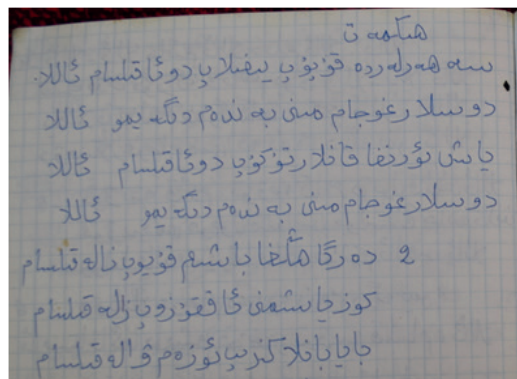 ھېكمەت
سەھەرلەردە قوپۇپ يىغلاپ دوئا قىلسام ئاللا
دوسلار غوجام مېنى بەندەم دىگەيمۇ ئاللا
ياش ئورنىغا قانلار تۆكۈپ دوئا قىلسام ئاللا
دوسلار غوجام مېنى بەندەم دىگەيمۇ ئاللا
2 دەرگاھىڭغا باشىم قۇيۇپ نالە قىلسام
كۆز ياشىمنى ئاققۇزۇپ زالە قىلسام
جايا بانلا كىزىپ ئۆزەم ۋالە قىلسام